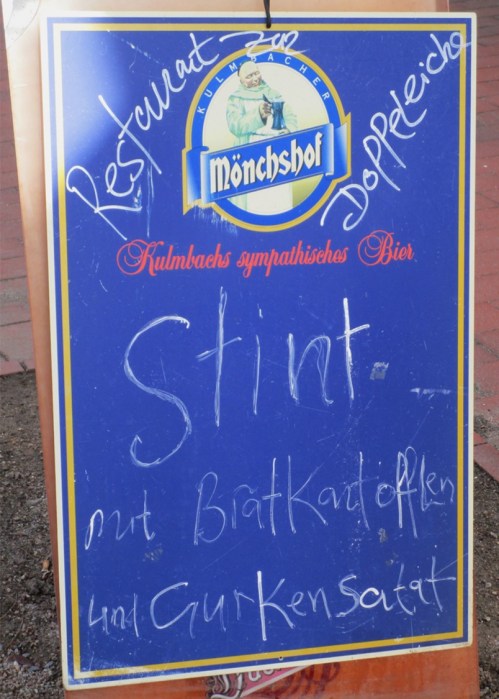 Restaurant zur
Doppeleiche
KULMBACHER
Mönchshof
Kulmbachs sympathisches Bier
Stint
mit Bratkartofflen
und Gurkensalat